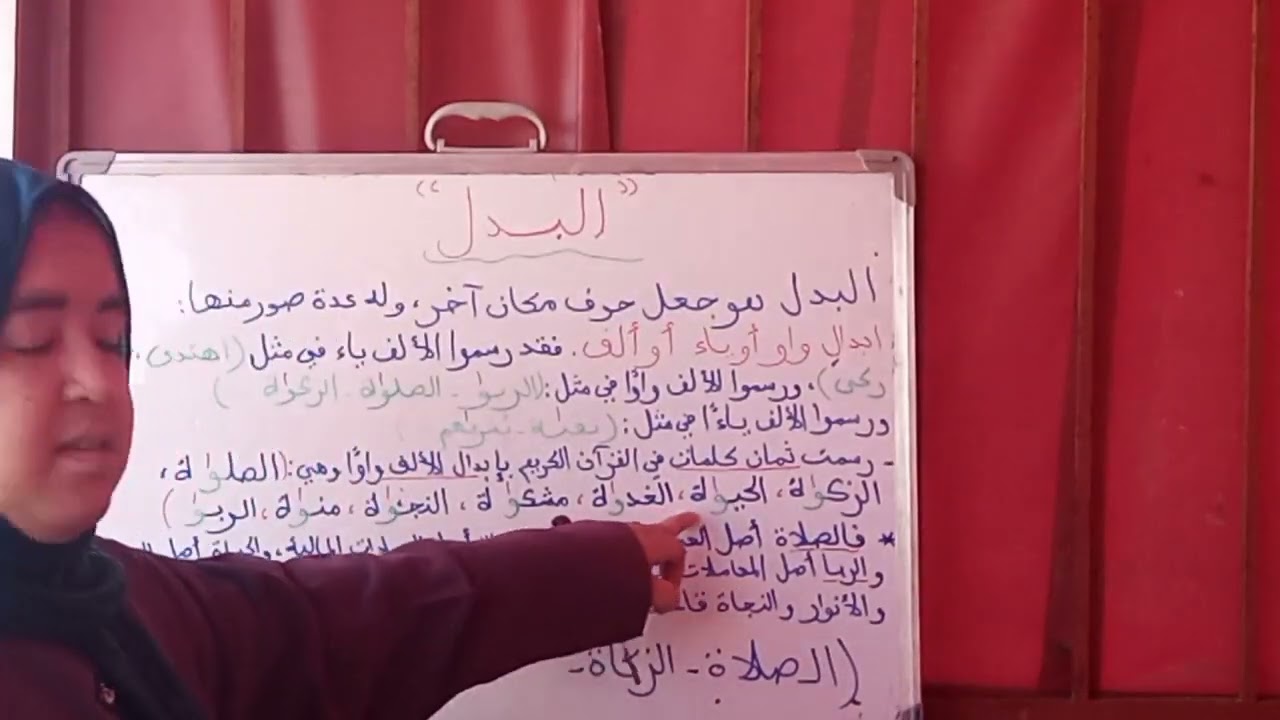 "البدل"
البدل هو جعل حرف مكان آخر، وله عدة صور منها:
ابدال واو أو ياء أو ألف. فقد رسموا الألف ياء في مثل (اهتدى،
زكى)، ورسموا الألف واوًا في مثل: (الربوٰا - الصلوٰاة - الزكوٰاة)
ورسموا الألف ياءًا في مثل: (
- رسمت ثمان كلمات في القرآن الكريم بإبدال الألف واوًا وهي: (الصلوٰة،
الزكوٰة، الحيوٰة، الغدوٰة، مشكوٰة، النجوٰة، منوٰة، الربوٰا)
* فالصلاة أصل المالية، والحياة أصل
والربا أصل المعاملات
والأنوار والنجاة
(الصلاة - الزكاة -